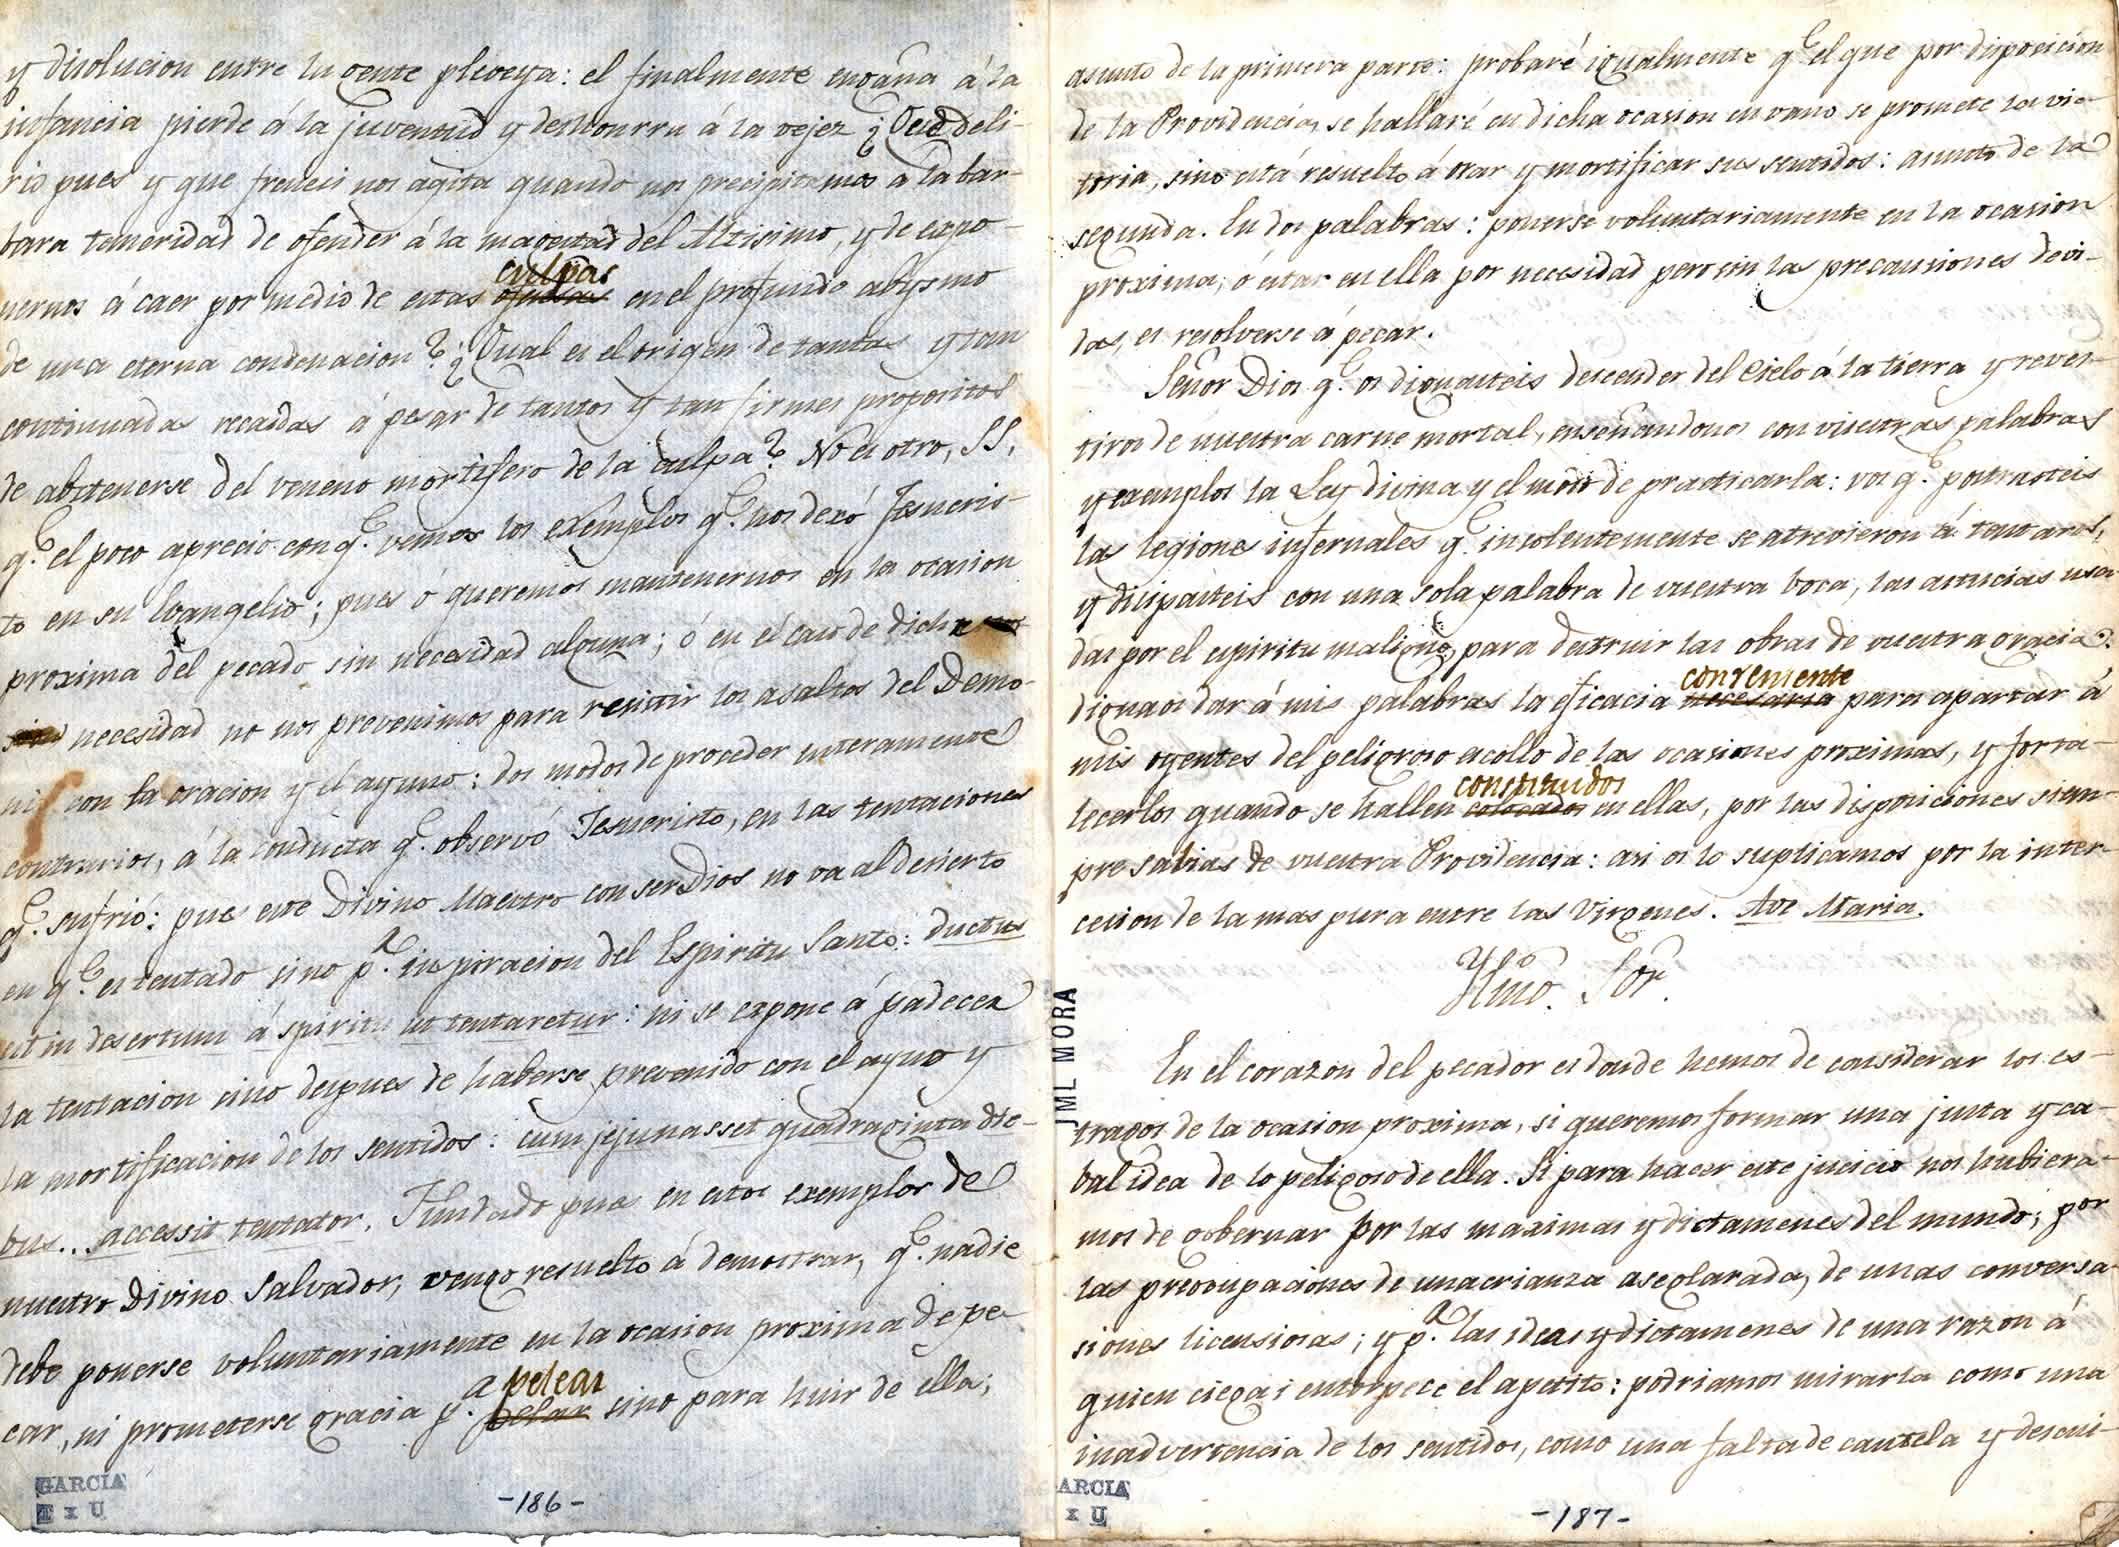 y disolucion entre la gente pleveya: el finalmente engaña á la
infancia pierde á la juventud y deshonrra á la vejez ¿Que deli-
rio pues y que frenesi nos agita quando nos precipitamos á la bar-
bara temeridad de ofender á la magestad del Altisimo, y de expo-
nernos á caer por medio de estas culpas ofensas en el profundo abysmo
de una eterna condenacion? ¿Qual es el origen de tantas y tan
continuadas recaidas á pesar de tantos y tan firmes propositos
de abstenerse del veneno mortifero de la culpa? No es otro, SS,
q.e el poco aprecio con q.e vemos los exemplos q.e nos dexó Jesucris-
to en su Evangelio; pues ó queremos mantenernos en la ocasion
proxima del pecado sin necesidad alguna; ó en el caso de dicha
necesidad no nos prevenimos para resistir los asaltos del Demo-
nio con la oracion y el ayuno: dos modos de proceder enteramente
contrarios, á la conducta q.e observó Jesucristo, en las tentaciones
q.e sufrió: pues este Divino Maestro con ser Dios no va al desierto
en q.e es tentado sino p.a inspiracion del Espiritu Santo: ductus
est in desertum á spiritu ut tentaretur: ni se expone á padecer
la tentacion sino despues de haberse prevenido con el ayuno y
la mortificacion de los sentidos: cum jejunasset quadraginta die-
bus.. accessit tentator. Fundado pues en estos exemplos de
nuestro Divino Salvador, vengo resuelto á demostrar, q.e nadie
debe ponerse voluntariamente en la ocasion proxima de pe-
car, ni prometerse gracia p.a pelear pelar sino para huir de ella;
GARCIA
T x U
-186-
asunto de la primera parte: probaré igualmente q.e el que por disposicion
de la Providencia, se hallaré en dicha ocasion en vano se promete la vic-
toria, sino está resuelto á orar y mortificar sus sentidos: asunto de la
segunda. En dos palabras: ponerse voluntariamente en la ocasion
proxima, ó estar en ella por necesidad pero sin las precausiones devi-
das, es resolverse á pecar.
Señor Dios q.e os dignasteis descender del Cielo á la tierra y reves-
tiros de nuestra carne mortal, enseñandonos con vuestras palabras
y exemplos la Ley divina y el modo de practicarla: vos q.e postrasteis
las legiones infernales q.e insolentemente se atrevieron á tentaros,
y disipasteis con una sola palabra de vuestra boca, las astucias usa-
das por el espiritu maligno, para destruir las obras de vuestra gracia:
dignaos dar á mis palabras la eficacia conveniente necesaria para apartar á
mis oyentes del peligroso escollo de las ocasiones proximas, y forta-
lecerlos quando se hallen constituidos colocados en ellas, por las disposiciones siem-
pre sabias de vuestra Providencia: asi os lo suplicamos por la inter-
cesion de la mas pura entre las Virgenes. Ave Maria.
Yllmo. Sor.
JML MORA
En el corazon del pecador es donde hemos de considerar los es-
tragos de la ocasion proxima, si queremos formar una justa y ca-
bal idea de lo peligoso de ella. Si para hacer este juicio nos hubiera-
mos de gobernar por las maximas y dictamenes del mundo; por
las preocupaciones de una crianza aseglarada, de unas conversa-
siones licensiosas; y p.a las ideas y dictamenes de una razon á
quien ciega i entorpece el apetito: podriamos mirarla como una
inadvertencia de los sentidos, como una falta de cautela y descui-
ARCIA
x U
-187-